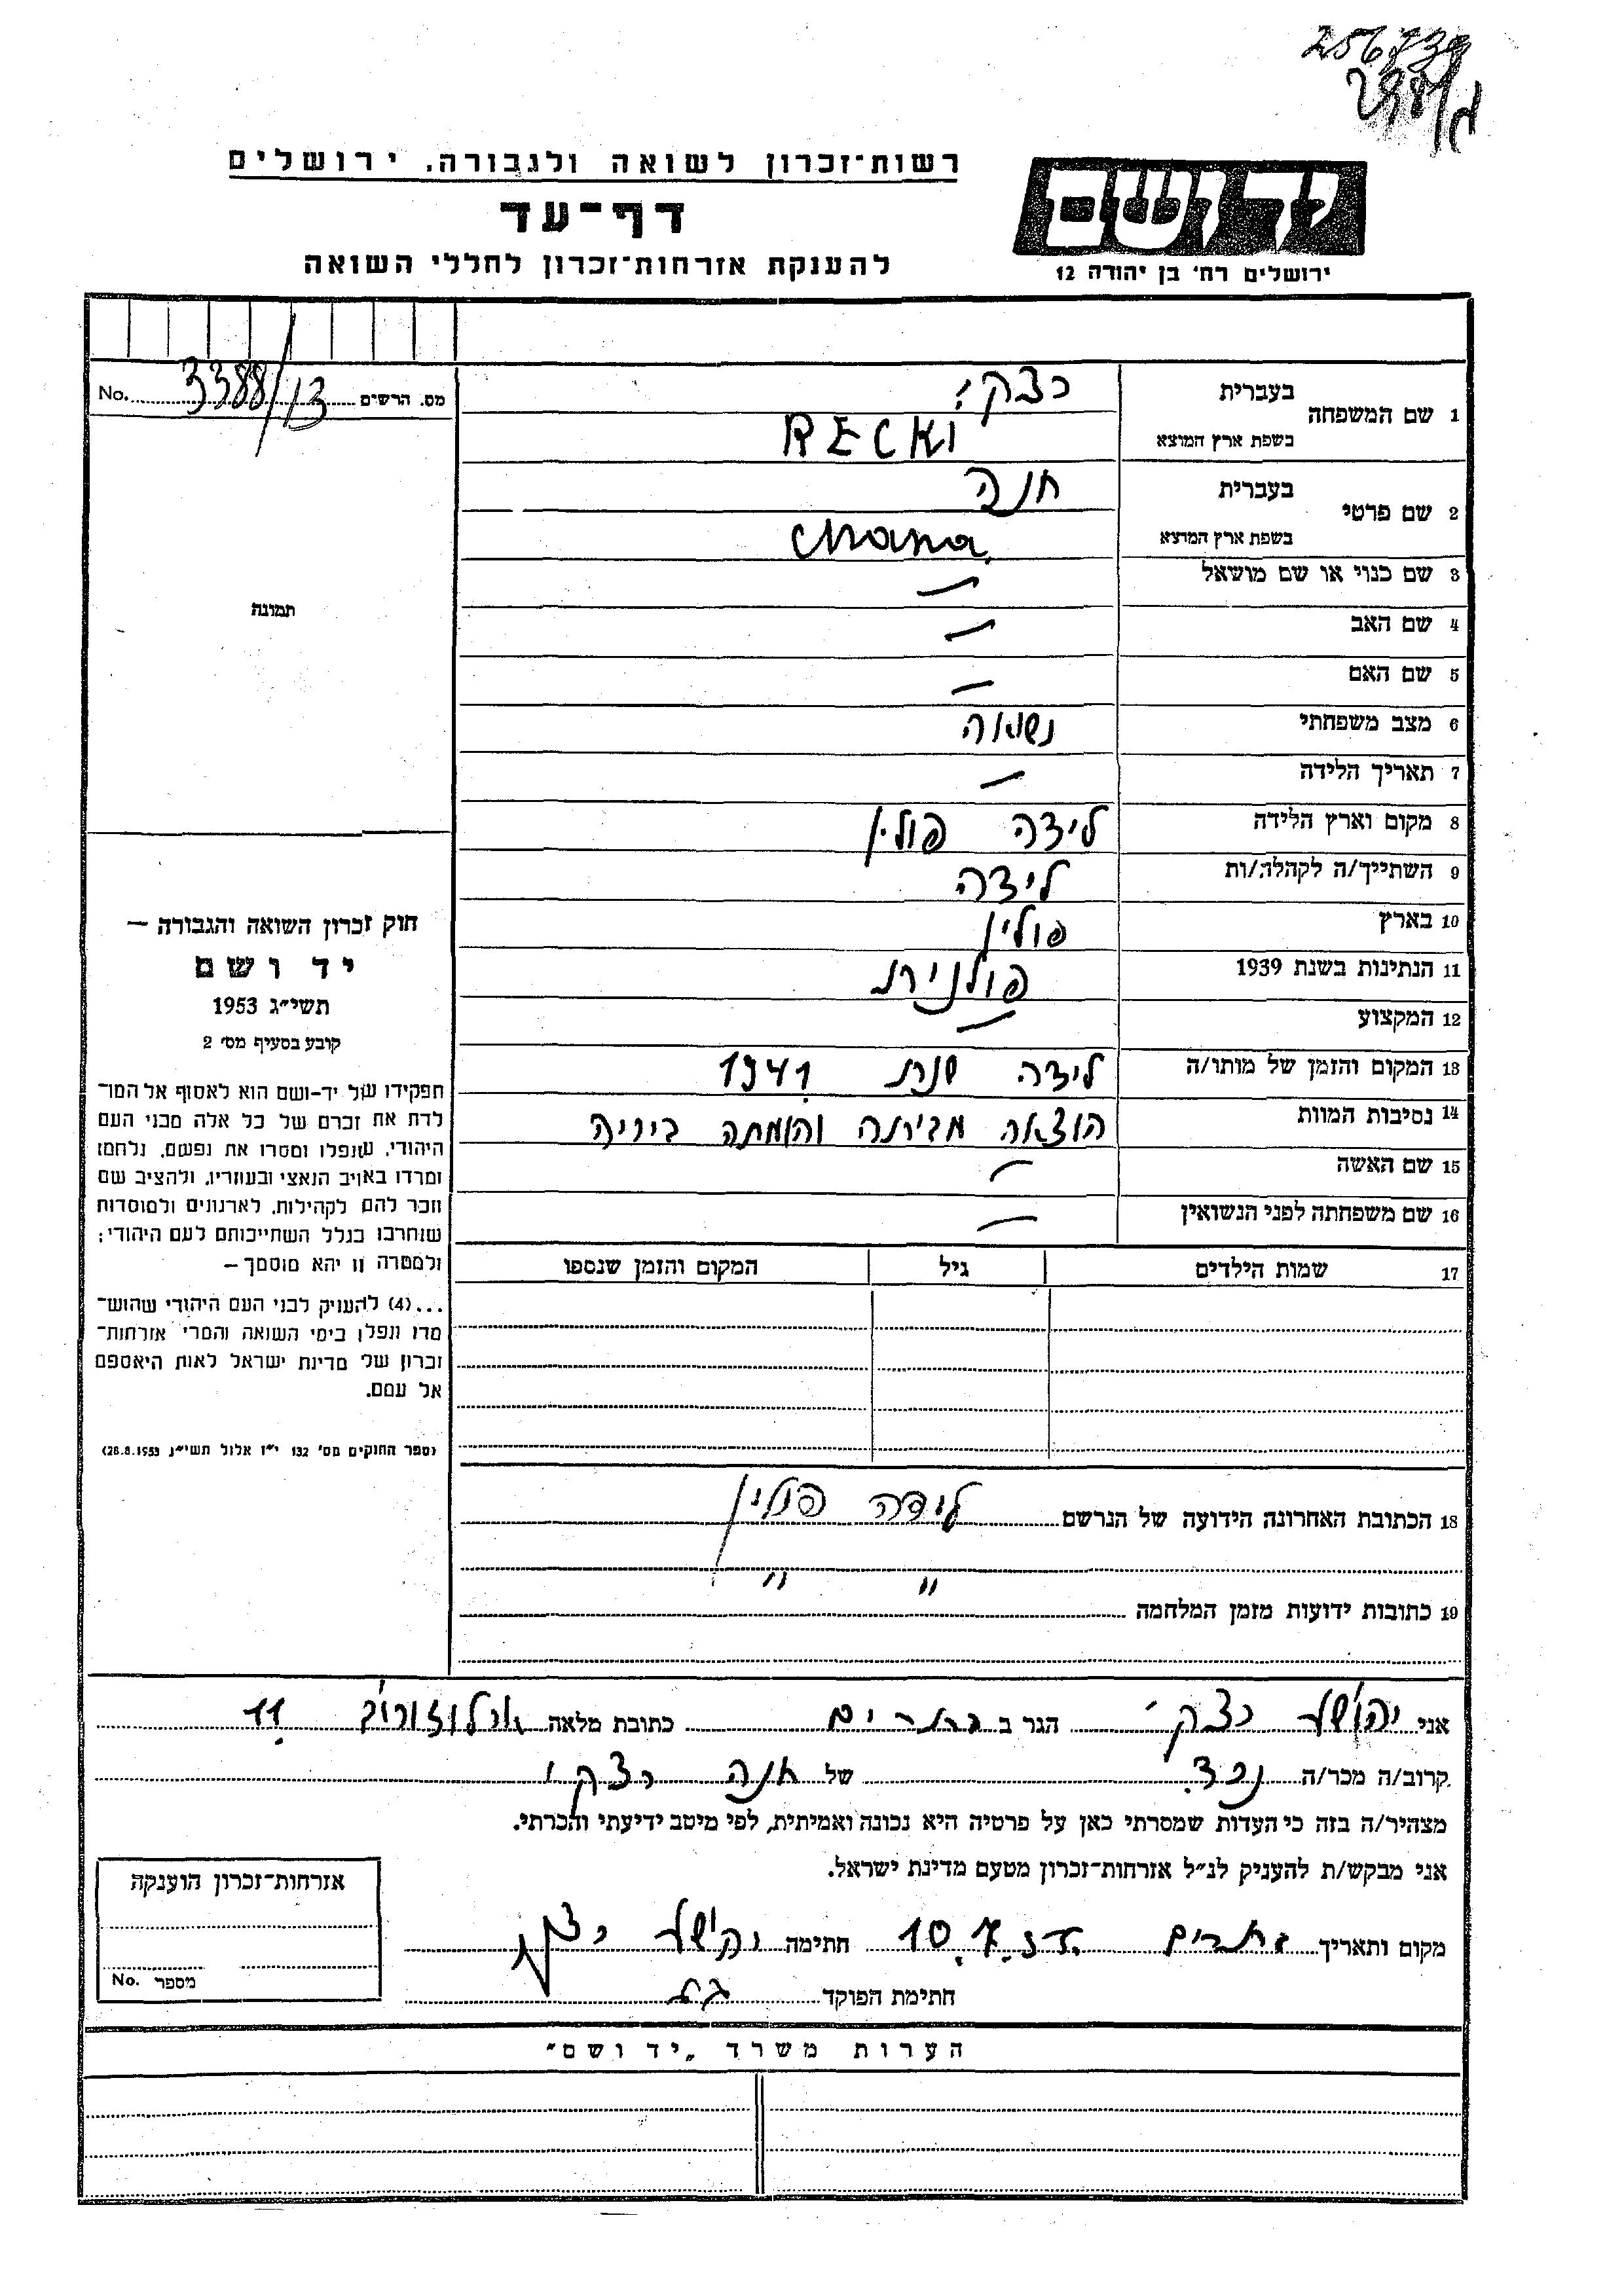 256739
רשות־זכרון לשואה ולגבורה. ירושלים
דף־עד
להענקת אזרחות־זכרון לחללי השואה
יד ושם
ירושלים רח׳ בן יהודה 12
מס. הרשים 3388/13 No.
1 שם המשפחה בעברית רצקי
בשפת ארץ המוצא RECKI
2 שם פרטי בעברית חנה
בשפת ארץ המוצא Chana
3 שם כנוי או שם מושאל —
4 שם האב —
5 שם האם —
6 מצב משפחתי נשואה
7 תאריך הלידה —
8 מקום וארץ הלידה לידה פולין
9 השתייך/ה לקהלה/ות לידה
10 בארץ פולין
11 הנתינות בשנת 1939 פולנית
12 המקצוע —
13 המקום והזמן של מותו/ה לידה שנת 1941
14 נסיבות המוות הוצאה מבירתה והומתה ביריה
15 שם האשה —
16 שם משפחתה לפני הנשואין —
17 שמות הילדים גיל המקום והזמן שנספו
18 הכתובת האחרונה הידועה של הנרשם לידה פולין
19 כתובות ידועות מזמן המלחמה " "
תמונה
חוק זכרון השואה והגבורה —
יד ושם
תשי״ג 1953
קובע בסעיף מס׳ 2
תפקידו של יד-ושם הוא לאסוף אל המו־
לדת את זכרם של כל אלה מבני העם
היהודי, שנפלו ומסרו את נפשם, נלחמו
ומרדו באויב הנאצי ובעוזריו, ולהציב שם
וזכר להם לקהילות, לארגונים ולמוסדות
שנחרבו בגלל השתייכותם לעם היהודי;
ולמטרה זו יהא מוסמך —
...(4) להעניק לבני העם היהודי שהוש־
מדו ונפלו בימי השואה והמרי אזרחות־
זכרון של מדינת ישראל לאות היאספם
אל עמם.
(ספר החוקים מס׳ 132 י״ז אלול תשי״ג 28.8.1953)
אני יהושע רצקי הגר ב כתובת מלאה ארלוזורוב 11
קרוב/ה מכר/ה נכד של חנה רצקי
מצהיר/ה בזה כי העדות שמסרתי כאן על פרטיה היא נכונה ואמיתית, לפי מיטב ידיעתי והכרתי.
אני מבקש/ת להעניק לנ״ל אזרחות־זכרון מטעם מדינת ישראל.
מקום ותאריך 10.7. חתימה יהושע רצקי
חתימת הפוקד
אזרחות־זכרון הוענקה
מספר No.
הערות משרד „יד ושם״